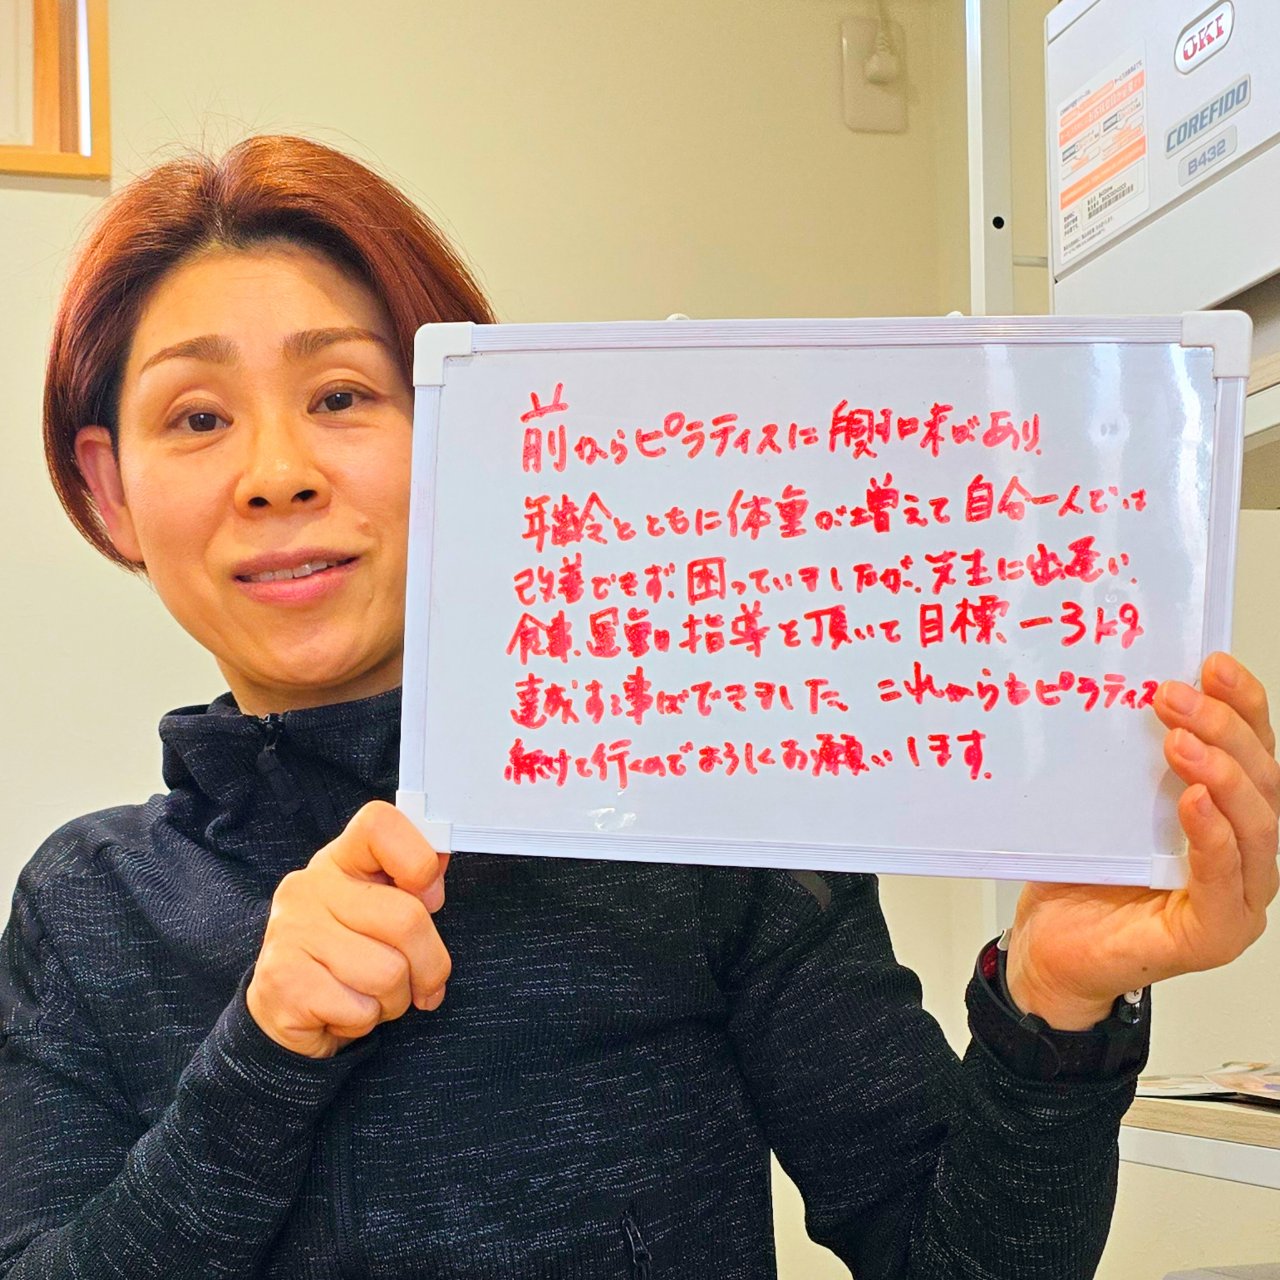 前からピラティスに興味があり、
年齢とともに体重が増えて自分一人では
改善できず、困っていましたが、先生に出逢い、
食事、運動指導を頂いて目標 －3kg
達成する事ができました。これからもピラティス
続けて行くのでよろしくお願いします。
OKI
COREFIDO
B432